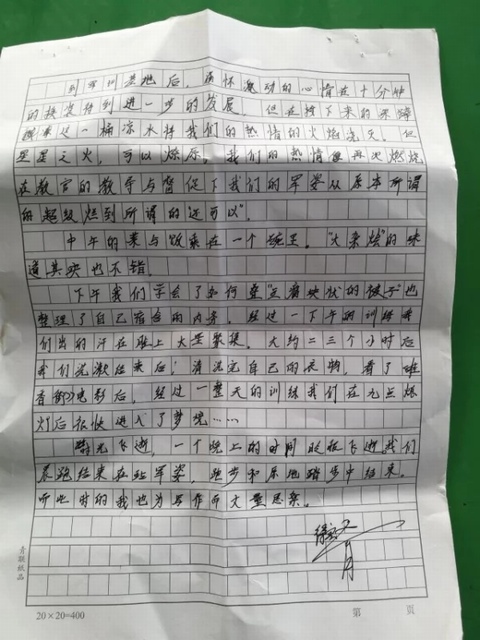 到军训基地后,满怀激动的心情在十分钟
的换装得到进一步的发展。但在接下来的来临
一桶凉水将我们的热情的火焰浇灭。但
星星之火,可以燎原,我们的热情再次燃烧
在教官的教导与督促下我们的军姿从原本所谓
的超级烂到所谓的"还可以"。
中午的菜与饭乘在一个碗里。"大杂烩"的味
道其实也不错。
下午我们学会了如何叠"豆腐块状的被子"也
整理了自己宿舍的内务。经过一下午的训练我
们出的汗在脸上大量聚集。大约二三个小时后
我们洗漱结束后;清洗完自己的衣物,看了
电影后,经过一整天的训练我们在九点熄
灯后很快进入了梦境……
时光飞逝,一个晚上的时间飞逝我们
晨跑结束在站军姿,跑步和原地踏步中结束。
听此时的我也为写作而文量思索。
青联纸品
20×20=400
第 页